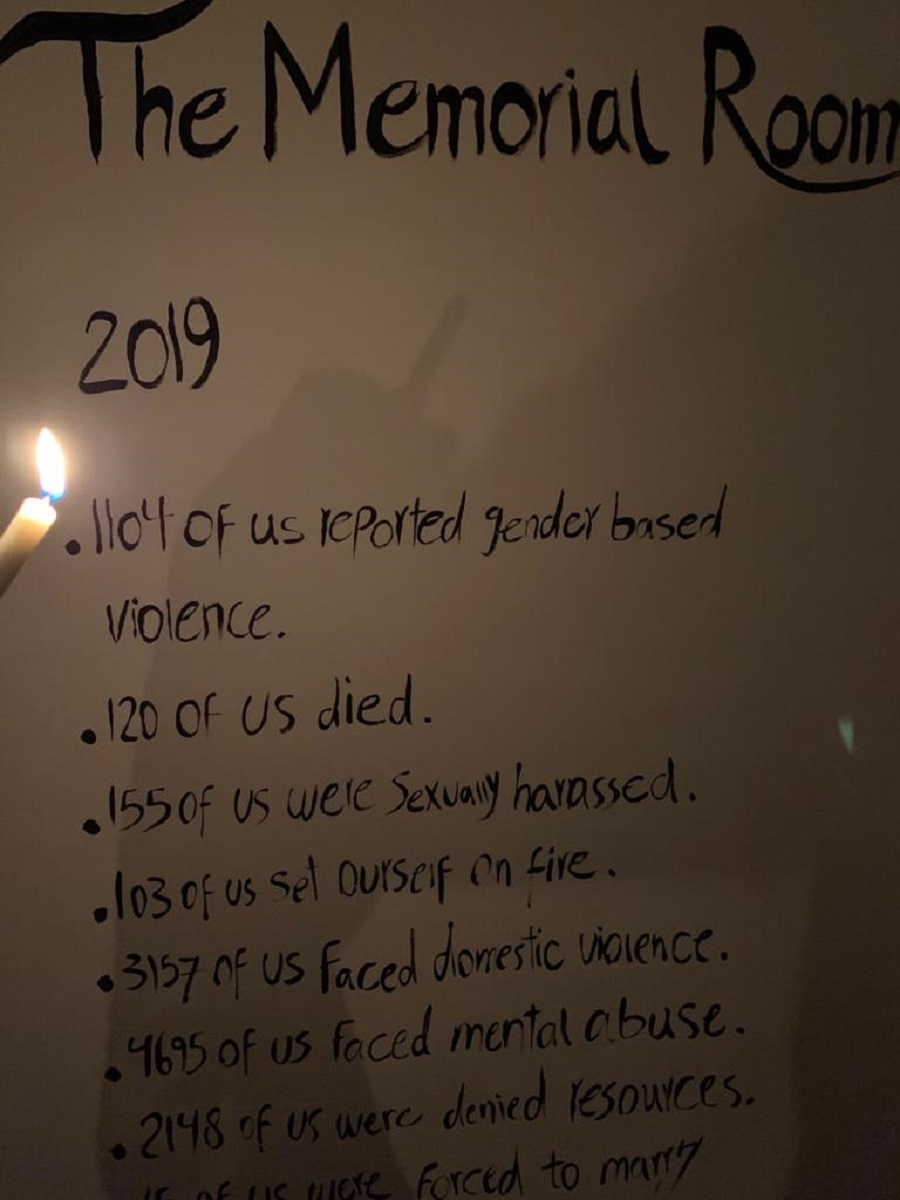 The Memorial Room
2019
.1104 of us reported gender based
violence.
.120 of us died.
.155 of us were sexually harassed.
.103 of us set ourself on fire.
.3157 of us faced domestic violence.
.4695 of us faced mental abuse.
.2148 of us were denied resources.
of us were forced to marry